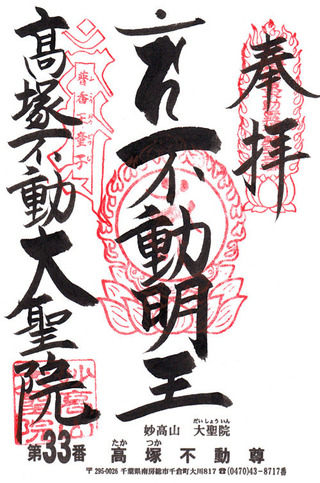 奉拝
不動明王
高塚不動大聖院
普香童子
妙高山 大聖院
だいしょういん
第33番 高塚不動尊
たか つか
〒295-0026 千葉県南房総市千倉町大川817 ☎(0470)43-8717番